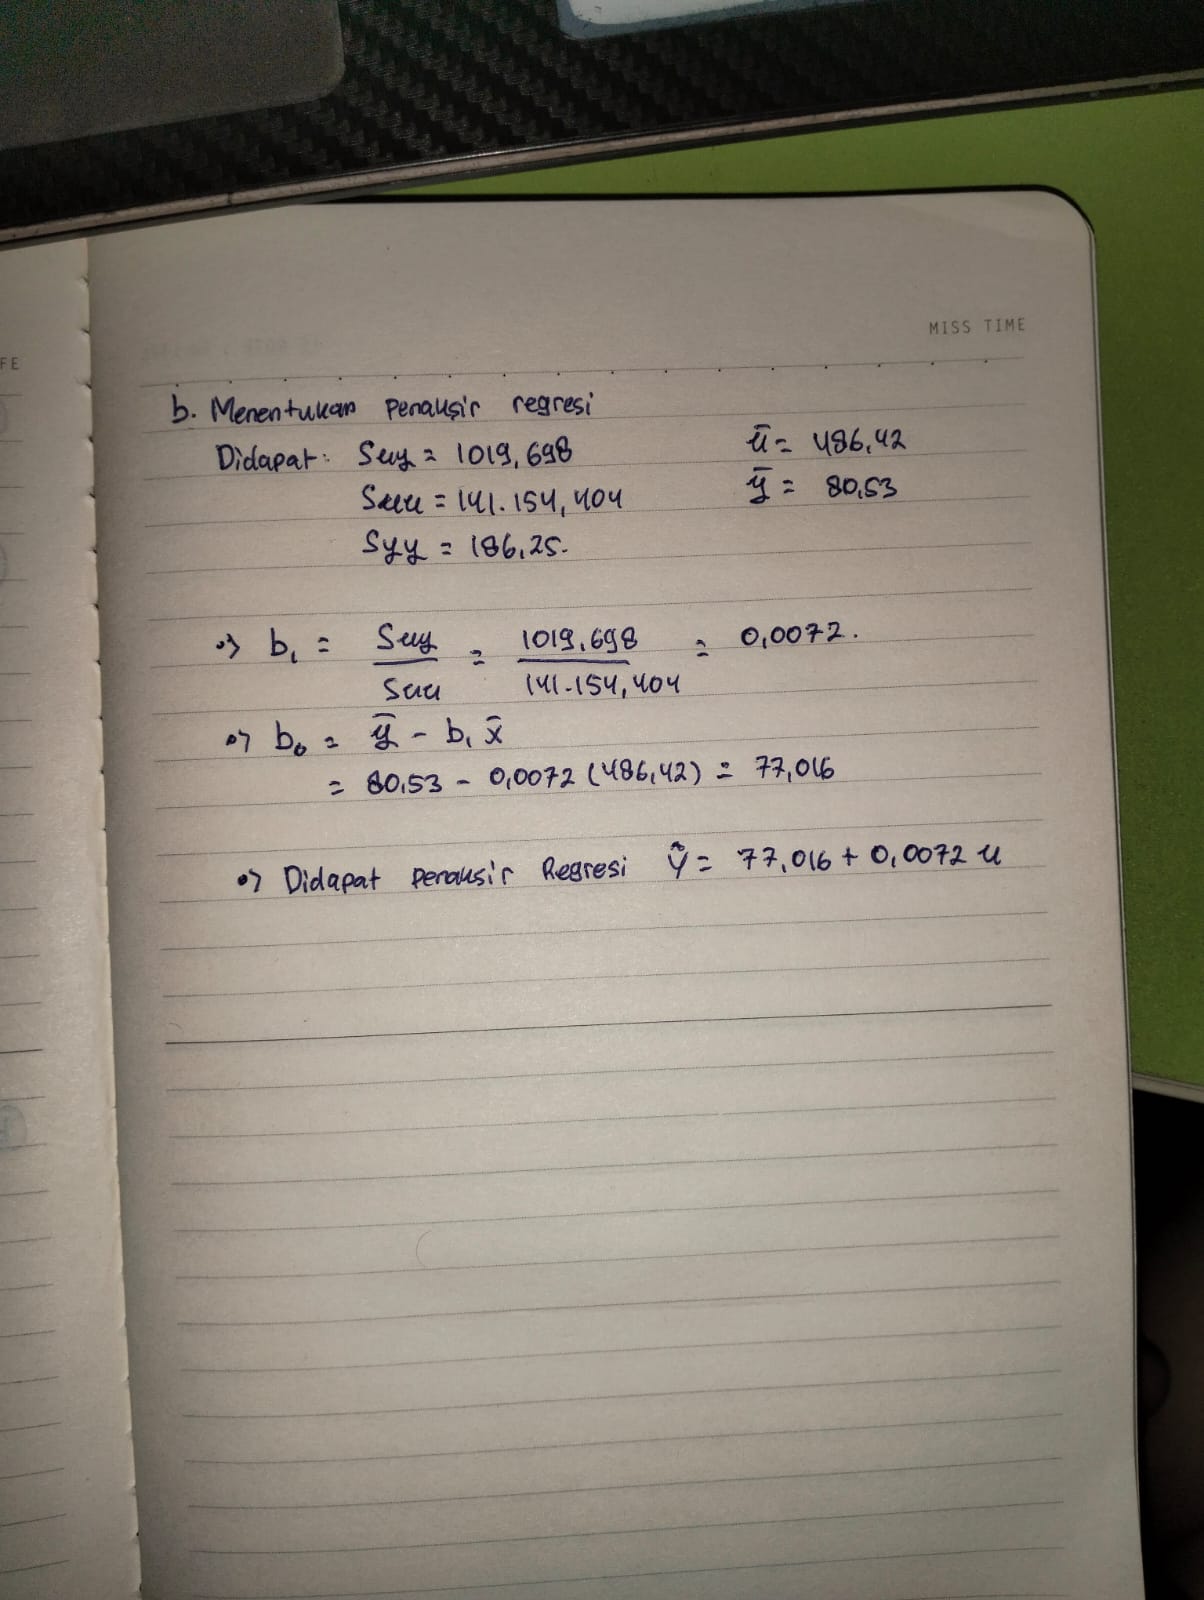 MISS TIME
FE
b. Menentukan penaksir regresi
Didapat: Sxy = 1019,698 x̄ = 486,42
Sxx = 141.154,404 ȳ = 80,53
Syy = 186,25.
•> b₁ = Sxy / Sxx = 1019,698 / 141.154,404 = 0,0072.
•> b₀ = ȳ - b₁ x̄
= 80,53 - 0,0072 (486,42) = 77,016
•> Didapat penaksir Regresi ŷ = 77,016 + 0,0072 x